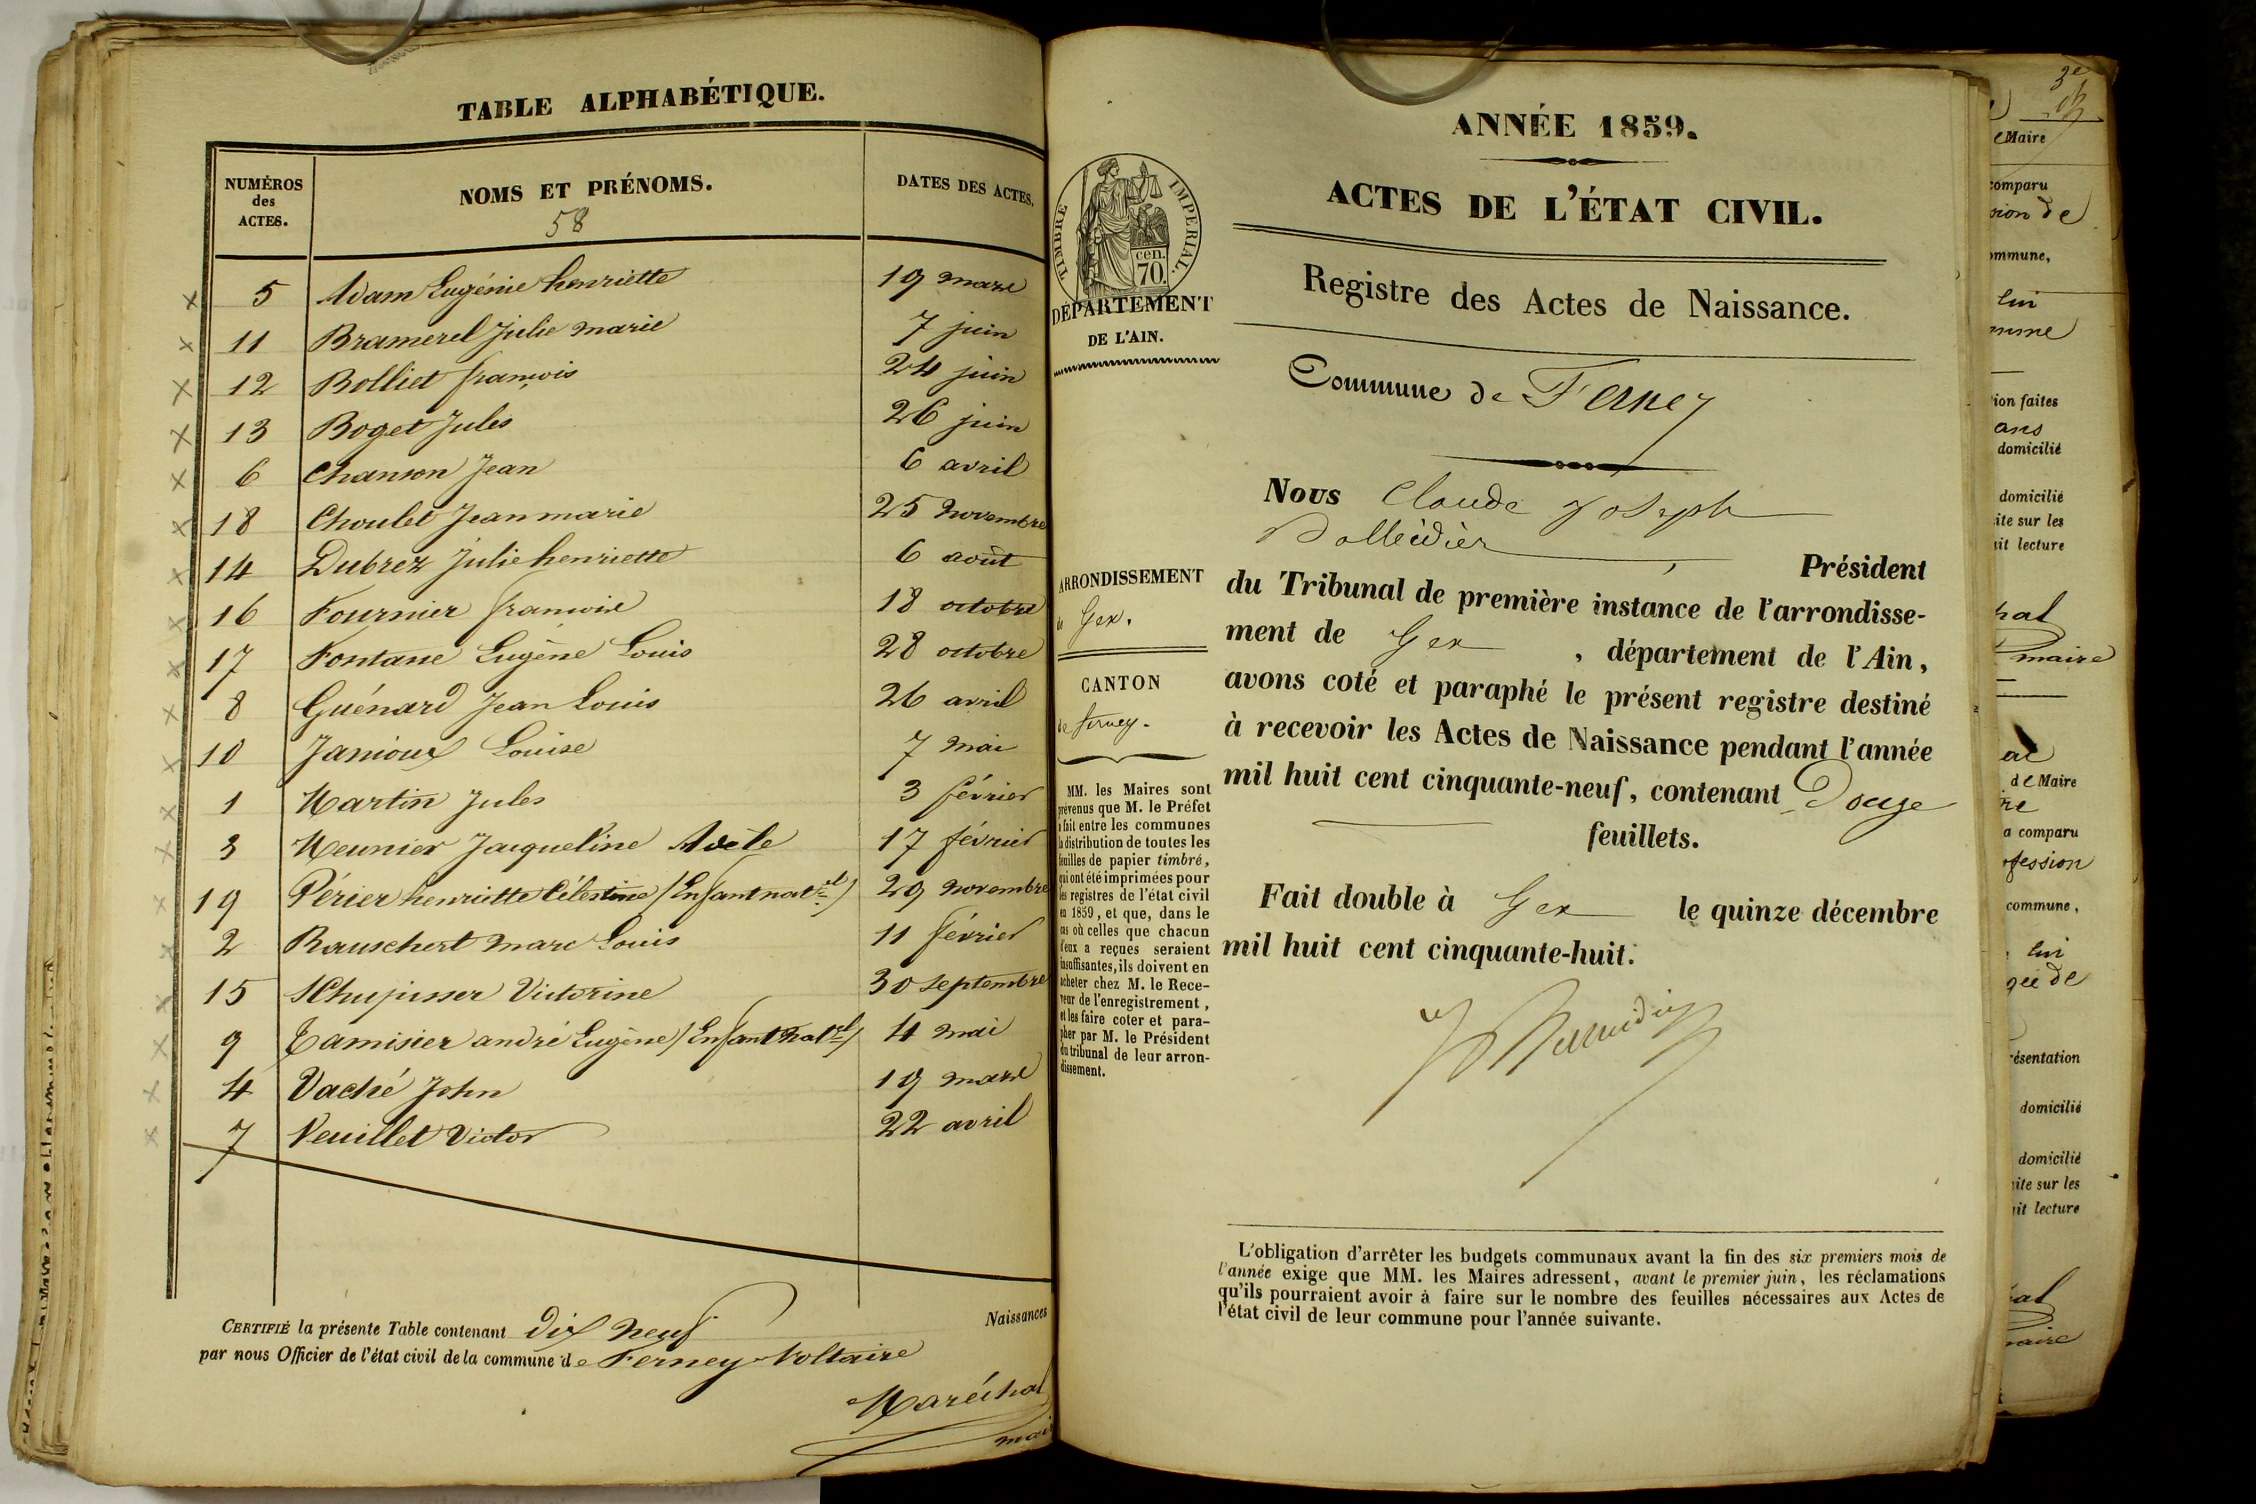 TABLE ALPHABÉTIQUE.
NUMÉROS des ACTES. NOMS ET PRÉNOMS. DATES DES ACTES.
58
5 Adam Eugénie henriette 19 mars
11 Bramerel Julie marie 7 juin
12 Bolliet françois 24 juin
13 Boget Jules 26 juin
6 Chanson Jean 6 avril
18 Choulet Jean marie 25 novembre
14 Dubrez Julie henriette 6 août
16 Fournier françoise 18 octobre
17 Fontane Eugène Louis 28 octobre
8 Guénard Jean Louis 26 avril
10 Janioux Louise 7 mai
1 Martin Jules 3 février
3 Meunier Jacqueline Adèle 17 février
19 Périer henriette Célestine (Enfant nat.el) 29 novembre
2 Rauschert marc Louis 11 février
15 Victorine 30 septembre
9 Tamisier andré Eugène (Enfant nat.el) 4 mai
4 Vaché John 19 mars
7 Veuillet Victor 22 avril
Naissances
CERTIFIÉ la présente Table contenant dix neuf
par nous Officier de l'état civil de la commune de Ferney-Voltaire
Maréchal
maire
ANNÉE 1859.
ACTES DE L'ÉTAT CIVIL.
TIMBRE IMPERIAL.
cen.
70.
DÉPARTEMENT
DE L'AIN.
Registre des Actes de Naissance.
Commune de Ferney
Nous Claude Joseph
Président
du Tribunal de première instance de l'arrondisse-
ment de Gex, département de l'Ain,
avons coté et paraphé le présent registre destiné
à recevoir les Actes de Naissance pendant l'année
mil huit cent cinquante-neuf, contenant Douze
feuillets.
Fait double à Gex le quinze décembre
mil huit cent cinquante-huit.
ARRONDISSEMENT
de Gex.
CANTON
de ferney.
MM. les Maires sont
prévenus que M. le Préfet
a fait entre les communes
la distribution de toutes les
feuilles de papier timbré,
qui ont été imprimées pour
les registres de l'état civil
en 1859, et que, dans le
cas où celles que chacun
d'eux a reçues seraient
insuffisantes, ils doivent en
acheter chez M. le Rece-
veur de l'enregistrement,
et les faire coter et para-
pher par M. le Président
du tribunal de leur arron-
dissement.
L'obligation d'arrêter les budgets communaux avant la fin des six premiers mois de
l'année exige que MM. les Maires adressent, avant le premier juin, les réclamations
qu'ils pourraient avoir à faire sur le nombre des feuilles nécessaires aux Actes de
l'état civil de leur commune pour l'année suivante.
Maire
comparu
sion de
ommune,
lui
ion faites
ans
domicilié
domicilié
ite sur les
it lecture
maire
de Maire
a comparu
ofession
commune,
lui
gée de
résentation
domicilié
domicilié
ite sur les
it lecture
maire